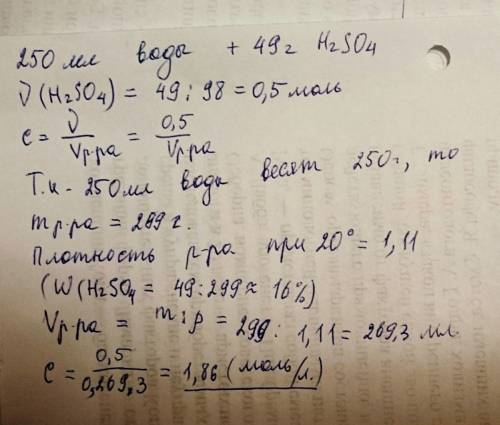 250 мл воды + 49 г H₂SO₄
ν(H₂SO₄) = 49 : 98 = 0,5 моль
c = ν/Vр-ра = 0,5/Vр-ра
Т.к. 250 мл воды весят 250 г, то
m р-ра = 299 г.
Плотность р-ра при 20° = 1,11
(W(H₂SO₄ = 49 : 299 ≈ 16%)
Vр-ра = m : ρ = 299 : 1,11 = 269,3 мл
c = 0,5/0,269,3 = 1,86 (моль/л.)